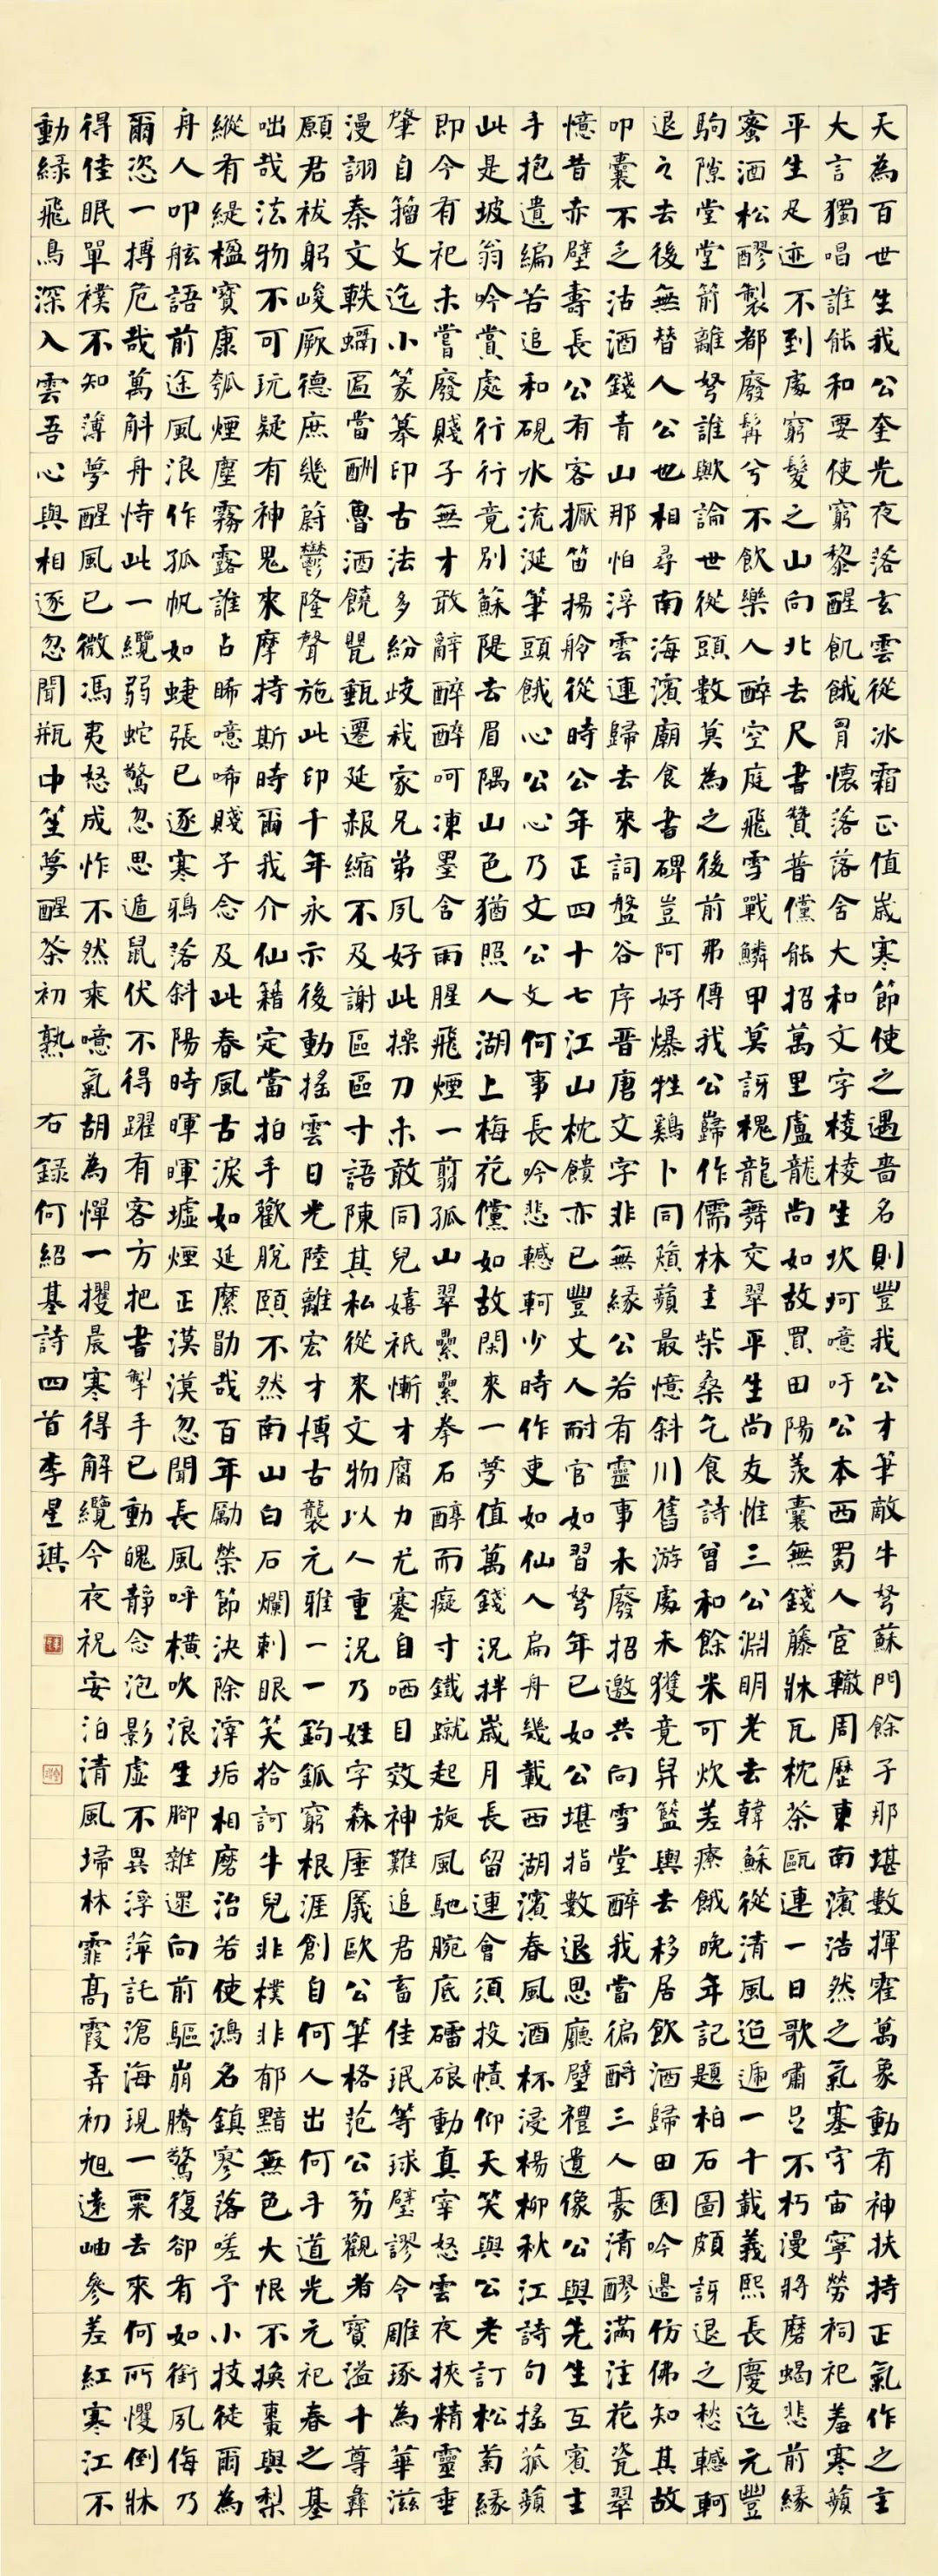 天為百世生我公奎光夜落玄雲從冰霜正值歲寒節使之遇嗇名則豐我公才筆敵牛弩蘇門餘子那堪數揮霍萬象動有神扶持正氣作之主
大言獨唱誰能和要使窮黎醒飢餓胃懷落落舍大和文字棱棱生坎坷噫吁公本西蜀人宦轍周歷東南濱浩然之氣塞宇宙寧勞祠祀羞寒蘋
平生足迹不到處窮髮之山向北去尺書贊普儻能招萬里盧龍尚如故買田陽羨囊無錢藤牀瓦枕茶甌連一日歌嘯呂不朽漫將磨蝎悲前緣
蜜酒松醪製都廢髯兮不飲樂人醉空庭飛雪戰鱗甲莫訝槐龍舞交翠平生尚友惟三公淵明老去韓蘇從清風迨遞一千載義熙長慶迄元豐
駒隙堂堂箭離弩誰歟論世從頭數莫為之後前弗傳我公歸作儒林主柴桑乞食詩曾和餘米可炊差療餓晚年記題柏石圖頗訝退之愁轗軻
退之去後無替人公也相尋南海濱廟食書碑豈阿好爆牲鷄卜同蘋蘋最憶斜川舊游處未獲竟舁籃輿去移居飲酒歸田園吟邊仿佛知其故
叩囊不乏沽酒錢青山那怕浮雲連歸去來詞盤谷序晋唐文字非無緣公若有靈事未廢招邀共向雪堂醉我當徧酹三人豪清醪滿注花瓷翠
憶昔赤壁壽長公有客擫笛揚舲從時公年正四十七江山枕饋亦已豐丈人耐官如習弩年已如公堪指數退思廳壁禮遺像公與先生互賓主
手抱遺編苦追和硯水流涎筆頭餓心公心乃文公文何事長吟悲轗軻少時作吏如仙人扁舟幾載西湖濱春風酒杯浸楊柳秋江詩句搖菰蘋
此是坡翁吟賞處行行竟別蘇隄去眉隅山色猶照人湖上梅花儻如故閑來一夢值萬錢況拌歲月長留連會須投幘仰天笑與公老訂松菊緣
即今有祀未嘗廢賤子無才敢辭醉醉呵凍墨含雨腥飛煙一翦孤山翠纍纍拳石醇而癡寸鐵蹴起旋風馳腕底礌硠動真宰怒雲夜挾精靈垂
肇自籀文迄小篆摹印古法多紛歧我家兄弟夙好此操刀未敢同兒嬉祇慚才腐力尤蹇自哂目效神難追君畜佳珉等球璧謬令雕琢為華滋
漫詡秦文軼蝸匾當酬魯酒饒甖甀遷延赧縮不及謝區區寸語陳其私從來文物以人重況乃姓字森厜㕒歐公筆格范公笏觀者寶溢十尊彝
願君袚躬峻厥德庶幾蔚鬱隆聲施此印千年永示後動搖雲日光陸離宏才博古襲元雅一一鉤鈲窮根涯創自何人出何手道光元祀春之基
咄哉法物不可玩疑有神鬼來摩持斯時爾我介仙籍定當拍手歡脫頤不然南山白石爛剌眼笑拾訶牛兒非樸非郁黯無色大恨不換棗與梨
縱有緹楹寶康瓠煙塵霧露誰占晞噫唏賤子念及此春風古淚如延縻勖哉百年勵榮節決除滓垢相磨治若使鴻名鎮寥落嗟予小技徒爾為
舟人叩舷語前途風浪作孤帆如蜨張已逐寒鴉落斜陽時暉暉墟煙正漠漠忽聞長風呼橫吹浪生腳雜遝向前驅崩騰驚復卻有如銜夙侮乃
爾恣一摶危哉萬斛舟恃此一纜弱蛇驚忽思遁鼠伏不得躍有客方把書掣手已動魄靜念泡影虛不異浮萍託滄海現一粟去來何所懼倒牀
得佳眠單襆不知薄夢醒風已微馮夷怒成怍不然來噫氣胡為憚一攫晨寒得解纜今夜祝安泊清風埽林霏高霞弄初旭遠岫參差紅寒江不
動綠飛鳥深入雲吾心與相逐忽聞瓶中笙夢醒茶初熟 右錄何紹基詩四首李星琪